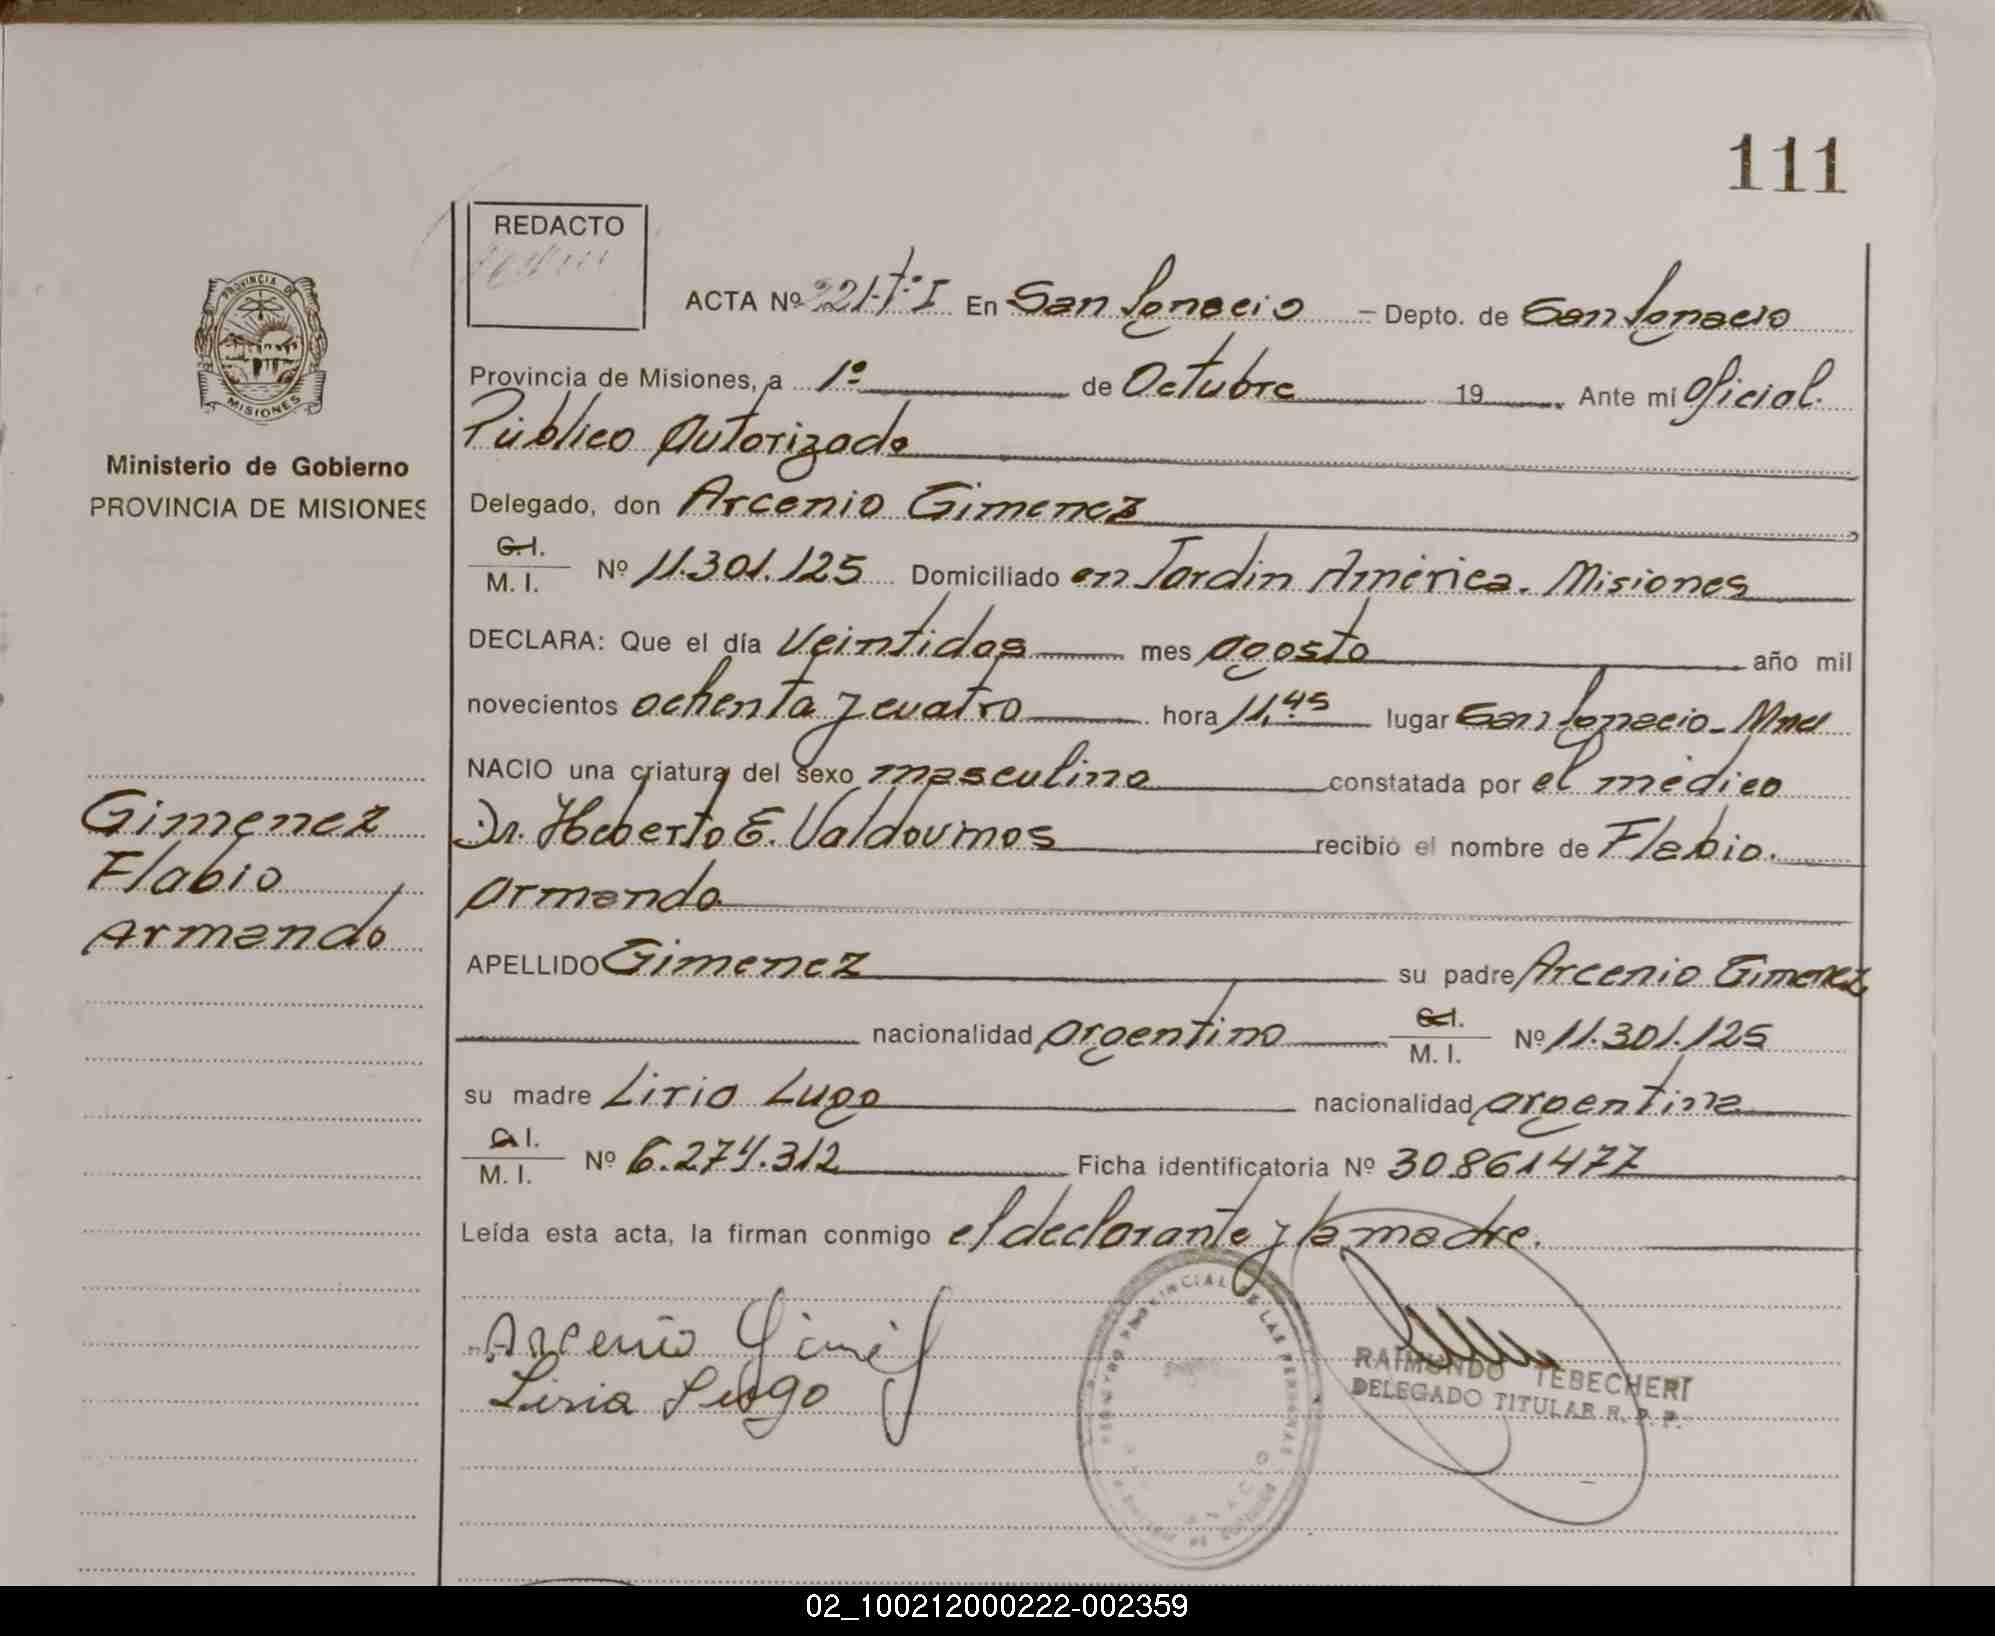 111
REDACTO
PROVINCIA DE
MISIONES
Ministerio de Gobierno
PROVINCIA DE MISIONES
ACTA Nº 221-Tº I En San Ignacio - Depto. de San Ignacio
Provincia de Misiones, a 1º de Octubre 19 Ante mí Oficial
Público Autorizado
Delegado, don Arcenio Gimenez
C.I.
M. I. Nº 11.301.125 Domiciliado en Jardin América. Misiones
DECLARA: Que el día Veintidos mes agosto año mil
novecientos ochenta y cuatro hora 11,45 lugar San Ignacio - Mnes
NACIO una criatura del sexo masculino constatada por el médico
Dr. Heberto E. Valdovinos recibió el nombre de Flabio.
Armando
Gimenez
Flabio
Armando
APELLIDO Gimenez su padre Arcenio Gimenez
nacionalidad argentino C.I.
M. I. Nº 11.301.125
su madre Lirio Lugo nacionalidad argentina
C.I.
M. I. Nº 6.274.312 Ficha identificatoria Nº 30.861477
Leída esta acta, la firman conmigo el declarante y la madre.
Arcenio
Liria Lugo
REGISTRO PROVINCIAL DE LAS PERSONAS
RAIMUNDO TEBECHERI
DELEGADO TITULAR R. P. P.
02_100212000222-002359